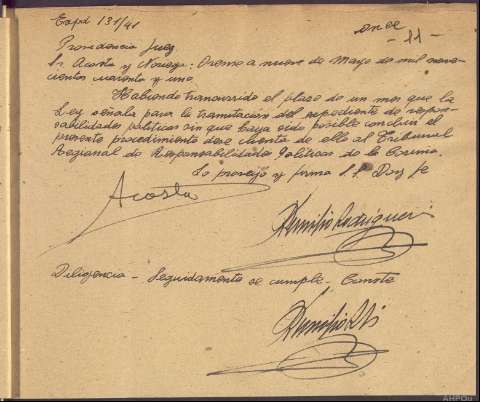 Exped 131/41
once
- 11 -
Providencia Juez
Sr. Acosta y Noriega: Orense a nueve de Mayo de mil nove-
cientos cuarenta y uno
Habiendo transcurrido el plazo de un mes que la
Ley señala para la tramitación del expediente de respon-
sabilidades políticas sin que haya sido posible concluir el
presente procedimiento dese cuenta de ello al Tribunal
Regional de Responsabilidades Políticas de la Coruña.
Lo proveyó y firma S.S. Doy fe
Acosta
Rodríguez
Diligencia - Seguidamente se cumple - Conste
AHPOu